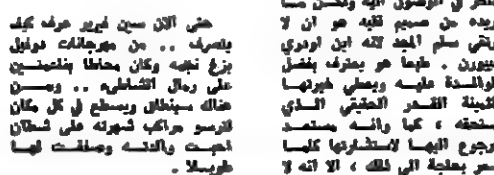 في الوصول اليه
يريده من صميم قلبه هو ان لا
يرتقي سلم المجد لانه ابن اودري
هيبورن . طبعا هو يعترف بفضل
الوالدة عليه ويعطي خبرتها
الثمينة القدر الحقيقي الذي
تستحقه ، كما وانه مستعد
للرجوع اليها لاستشارتها كلما
شعر بحاجة الى ذلك ، الا انه لا
حتى الآن سين فيرير عرف كيف
يتصرف .. من مهرجانات دوفيل
بزغ نجمه وكان محاطا بفتاتين
على رمال الشاطىء .. ومن
هناك سينطلق ويسطع في كل مكان
لترسو مراكب شهرته على شطآن
احبت والدته وصفقت لها
طويلا .